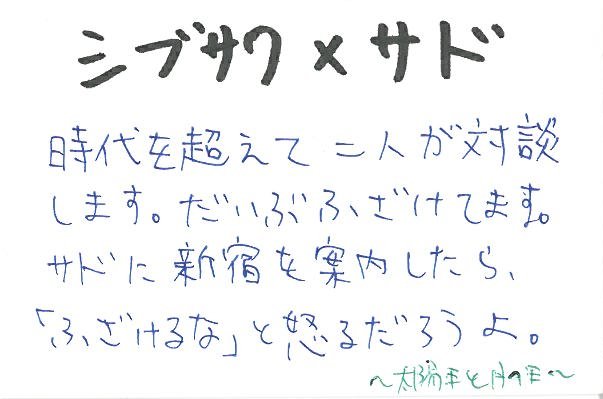 シブサワ×サド
時代を超えて二人が対談
します。だいぶふざけてます。
サドに新宿を案内したら、
「ふざけるな」と怒るだろうよ。
～太陽王と月の王～